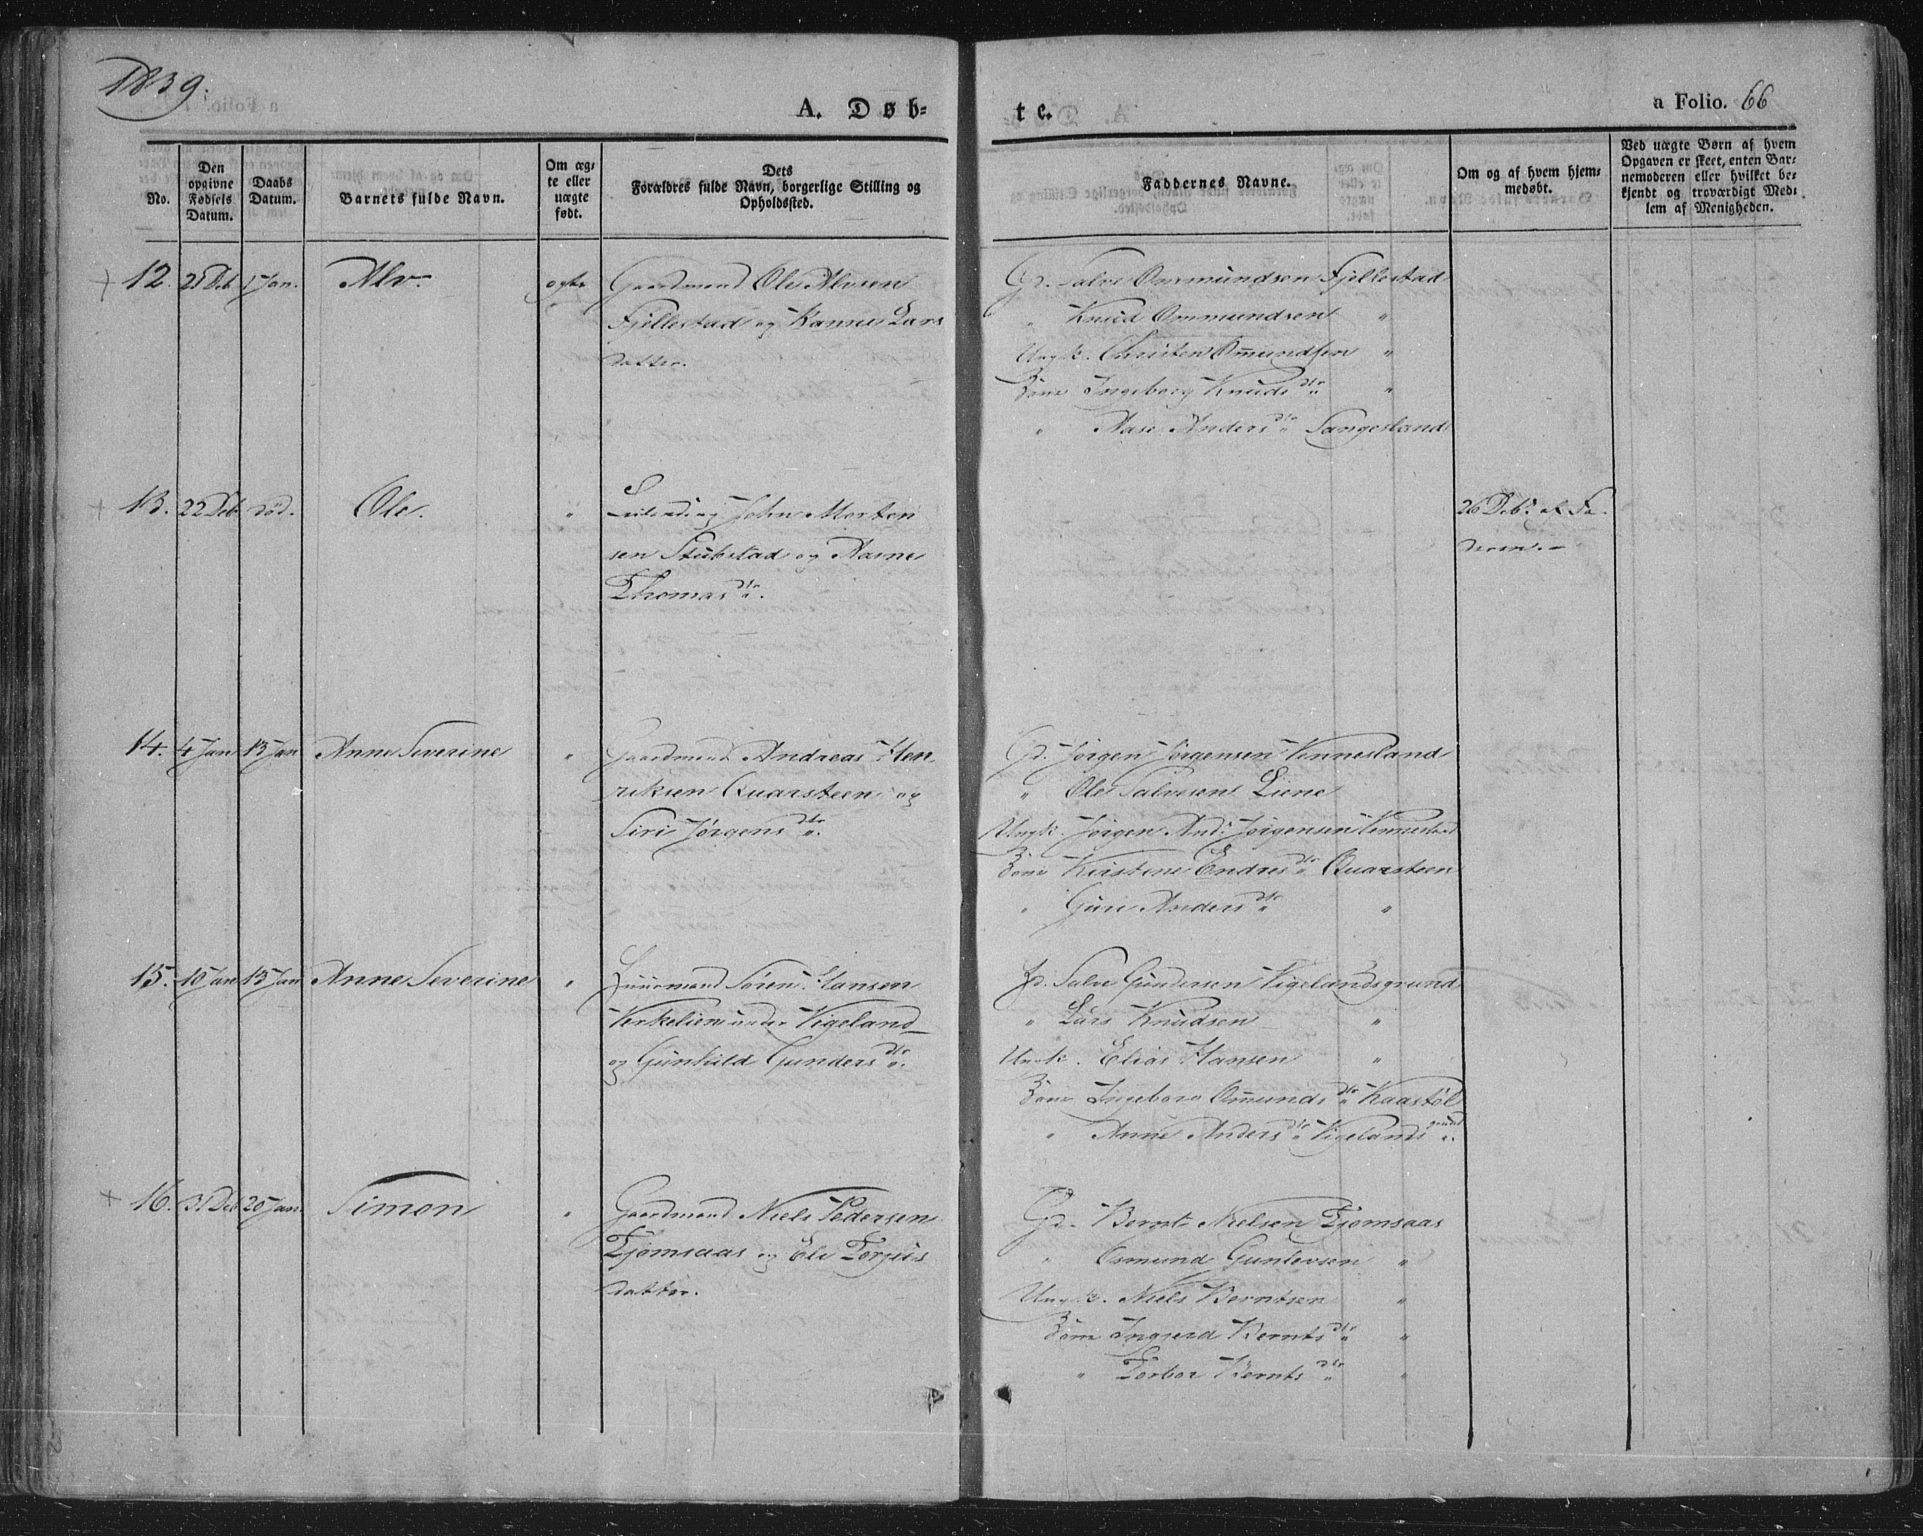 1839.
A. Døb-
te.
a Folio. 66
No.
Den opgivne Fødsels Datum.
Daabs Datum.
Barnets fulde Navn.
Om ægte eller uægte født.
Dets Forældres fulde Navn, borgerlige Stilling og Opholdssted.
Faddernes Navne.
Om og af hvem hjemmedøbt.
Ved uægte Børn af hvem Opgaven er skeet, enten Barnemoderen eller hvilket bekjendt og troværdigt Medlem af Menigheden.
12. 21 Deb 1 Jan. Alv. ægte Gaardmand Ole Alvsen
Fjellestad og Lars
datter.
Gd. Salve Ommundsen Fjellestad
" Knud Ommundsen "
Ungk. Christen Om̅undsen "
Kone Ingeborg Knudsdtr "
" Aase Andersdtr Sangesland
13. 22 Deb død. Ole. " Leilending John Morten
sen Stubstad og Aasne
Thomasdtr.
26 Debr af Fa-
deren.
14. 4 Jan 13 Jan Anne Severine " Gaardmand Andreas Hen
riksen Quarsteen og
Siri Jørgensdtr.
Gd. Jørgen Jørgensen Vennesland
" Ole Salvesen Liene
Ungk. Jørgen And: Jørgensen Vennesland
Kone Kirstine Endresdtr Quarsteen
" Guri Andersdtr "
15. 10 Jan 13 Jan Anne Severine " Huusmand Søren Hansen
Verkelien under Vigeland
og Gunhild Gundersdtr.
Salve Gundersen Vigelandsgrund
" Lars Knudsen "
Ungk. Elias Hansen "
Kone Ingeborg Om̅undsdtr Kaastøl
" Anne Andersdtr Vigelandsgrund
16. 31 Deb 20 Jan. Simon " Gaardmand Niels Pedersen
Tjomsaas og Eli Torjus
datter.
Gd. Bernt Nielsen Tjomsaas
" Osmund Gunlevsen "
Ungk. Niels Berntsen "
Kone Ingjerd Berntsdtr "
" Torbor Berntsdtr "